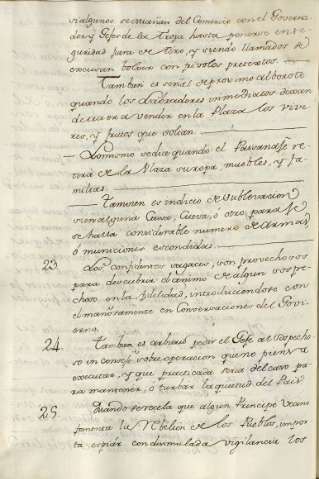 si algunos se estrañan del Comercio con el Governa-
dor, y Gefes de la Tropa hasta ponerse en se-
guridad para el tiro, y siendo llamados se
escusan
con frivolos pretextos.
Tambien es señal de proximo alboroto
quando los Labradores inmediatos dexan
de llevar a vender en la Plaza los vive-
res, y frutos que solian.
Lo mismo se dice quando el Paysanage re-
tira de la Plaza su ropa, muebles, y fa-
milias.
Tambien es indicio de sublevacion
si en alguna Casa, Cueva, ó otro parage
se halla considerable numero de Armas,
ó municiones escondidas.
23. Los confidentes vagaces, son provechosos
para descubrir el animo de algun sospe-
choso en la fidelidad, introduciendose con
el mañosamente en Conversaciones del Govi-
erno.
24. Tambien es ardid pedir el Gefe al sospecho-
so un consejo sobre operacion que no piensa
executar, y que practicada seria del caso pa-
ra mantener, ó turbar la quietud del Pais.
25. Quando se recela que algun Principe Vecino
fomenta la Rebelion de los Pueblos, impor-
ta espiar con disimulada vigilancia los